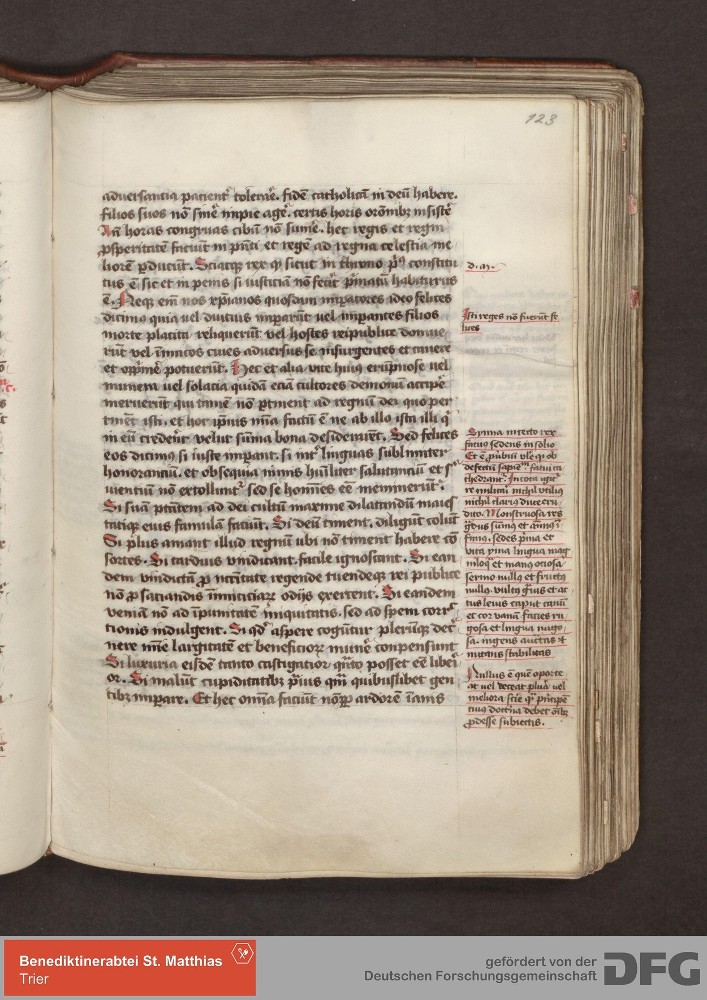 123
aduersantia pacient᷑ tolerar̄e. fidē catholicā in deū habere.
filios suos nō sine᷑ impie age᷑. certis horis orōnibꝫ insiste᷑
An̄ horas congruas cibū nō sume᷑. hec regis et regni
ꝓsperitatē faciūt in pn̄ti et regē ad regna celestia me
liorē ꝑducūt. Sciatqꝫ rex ꝙ sicut in throno pͥmꝰ constitu
tus ē sic et in penis si iusticiā nō fecit᷑ pͥmatū habiturus
ē. Neqꝫ em̄ nos xp̄ianos quosdam impatores ideo felices
dicimꝰ quia uel diucius impar̄ūt uel impantes filios
morte placita reliquerūt uel hostes reipublice domue
rūt vel inīcos ciues aduersus se insurgentes et cauere
et opp̄me᷑ potuerūt. Hec et alia vite huiꝰ erūpnose uel
munera uel solacia quidā eciā cultores demonū accipe᷑
meruerūt qui tamē nō ꝑtinent ad regnū dei quo ꝑ
tinēt isti. et hoc ip̄ius mīa factū ē ne ab illo ista illi ꝗ
in eū crederēt velut sūma bona desiderarēt. Sed felices
eos dicimꝰ si iuste impant. si int᷑ linguas sublimiter
honorantiū. et obsequia nimis hūiliter salutanciū et s᷑
uientiū nō extollunt᷑ sed se homīes eē meminerūt.
Si suā ptātem ad dei cultū maxime dilatandū maies
tatiqꝫ eius famulā faciūt. Si deū timent. diligūt colūt
Si plus amant illud regnū ubi nō timent habere cō
sortes. Si tardius vindicant. facile ignoscant. Si ean
dem vindictā ꝓ nc̄citate regende tuendeqꝫ rei publice
nō ꝓ saciandis inimiciciaꝝ odijs exercent. Si eandem
veniā nō ad īpunitatē iniquitatis. sed ad spem corr᷑
tionis indulgent. Si qd᷑ aspere cogūtur plerūqꝫ de᷑c
nere mīe largitatē et beneficioꝝ munē conpensunt
Si luxuria eisdē tanto castigatior qūto posset eē libe᷑i
or. Si malūt cupiditatibꝫ pͥuis qm̄ quibuslibet gen
tibꝫ impare. Et hec omīa faciūt nō ꝓp̄ ardorē īanis
Isti reges nō fuerūt fe
lices
Et ē
sermo nullꝰ et fructꝰ
nullꝰ
tus leuis caput canū
et cor vanū facies ru
gosa et lingua nugo
sa. ingens auctas &
nutans stabilitas
Nullus ē quē oporte
at uel deceat plura uel
meliora scīe qͣ pͥncipē
cuiꝰ doctͥna debet oībꝫ
ꝓdesse subiectis.
Benediktinerabtei St. Matthias
Trier
gefördert von der
Deutschen Forschungsgemeinschaft
DFG